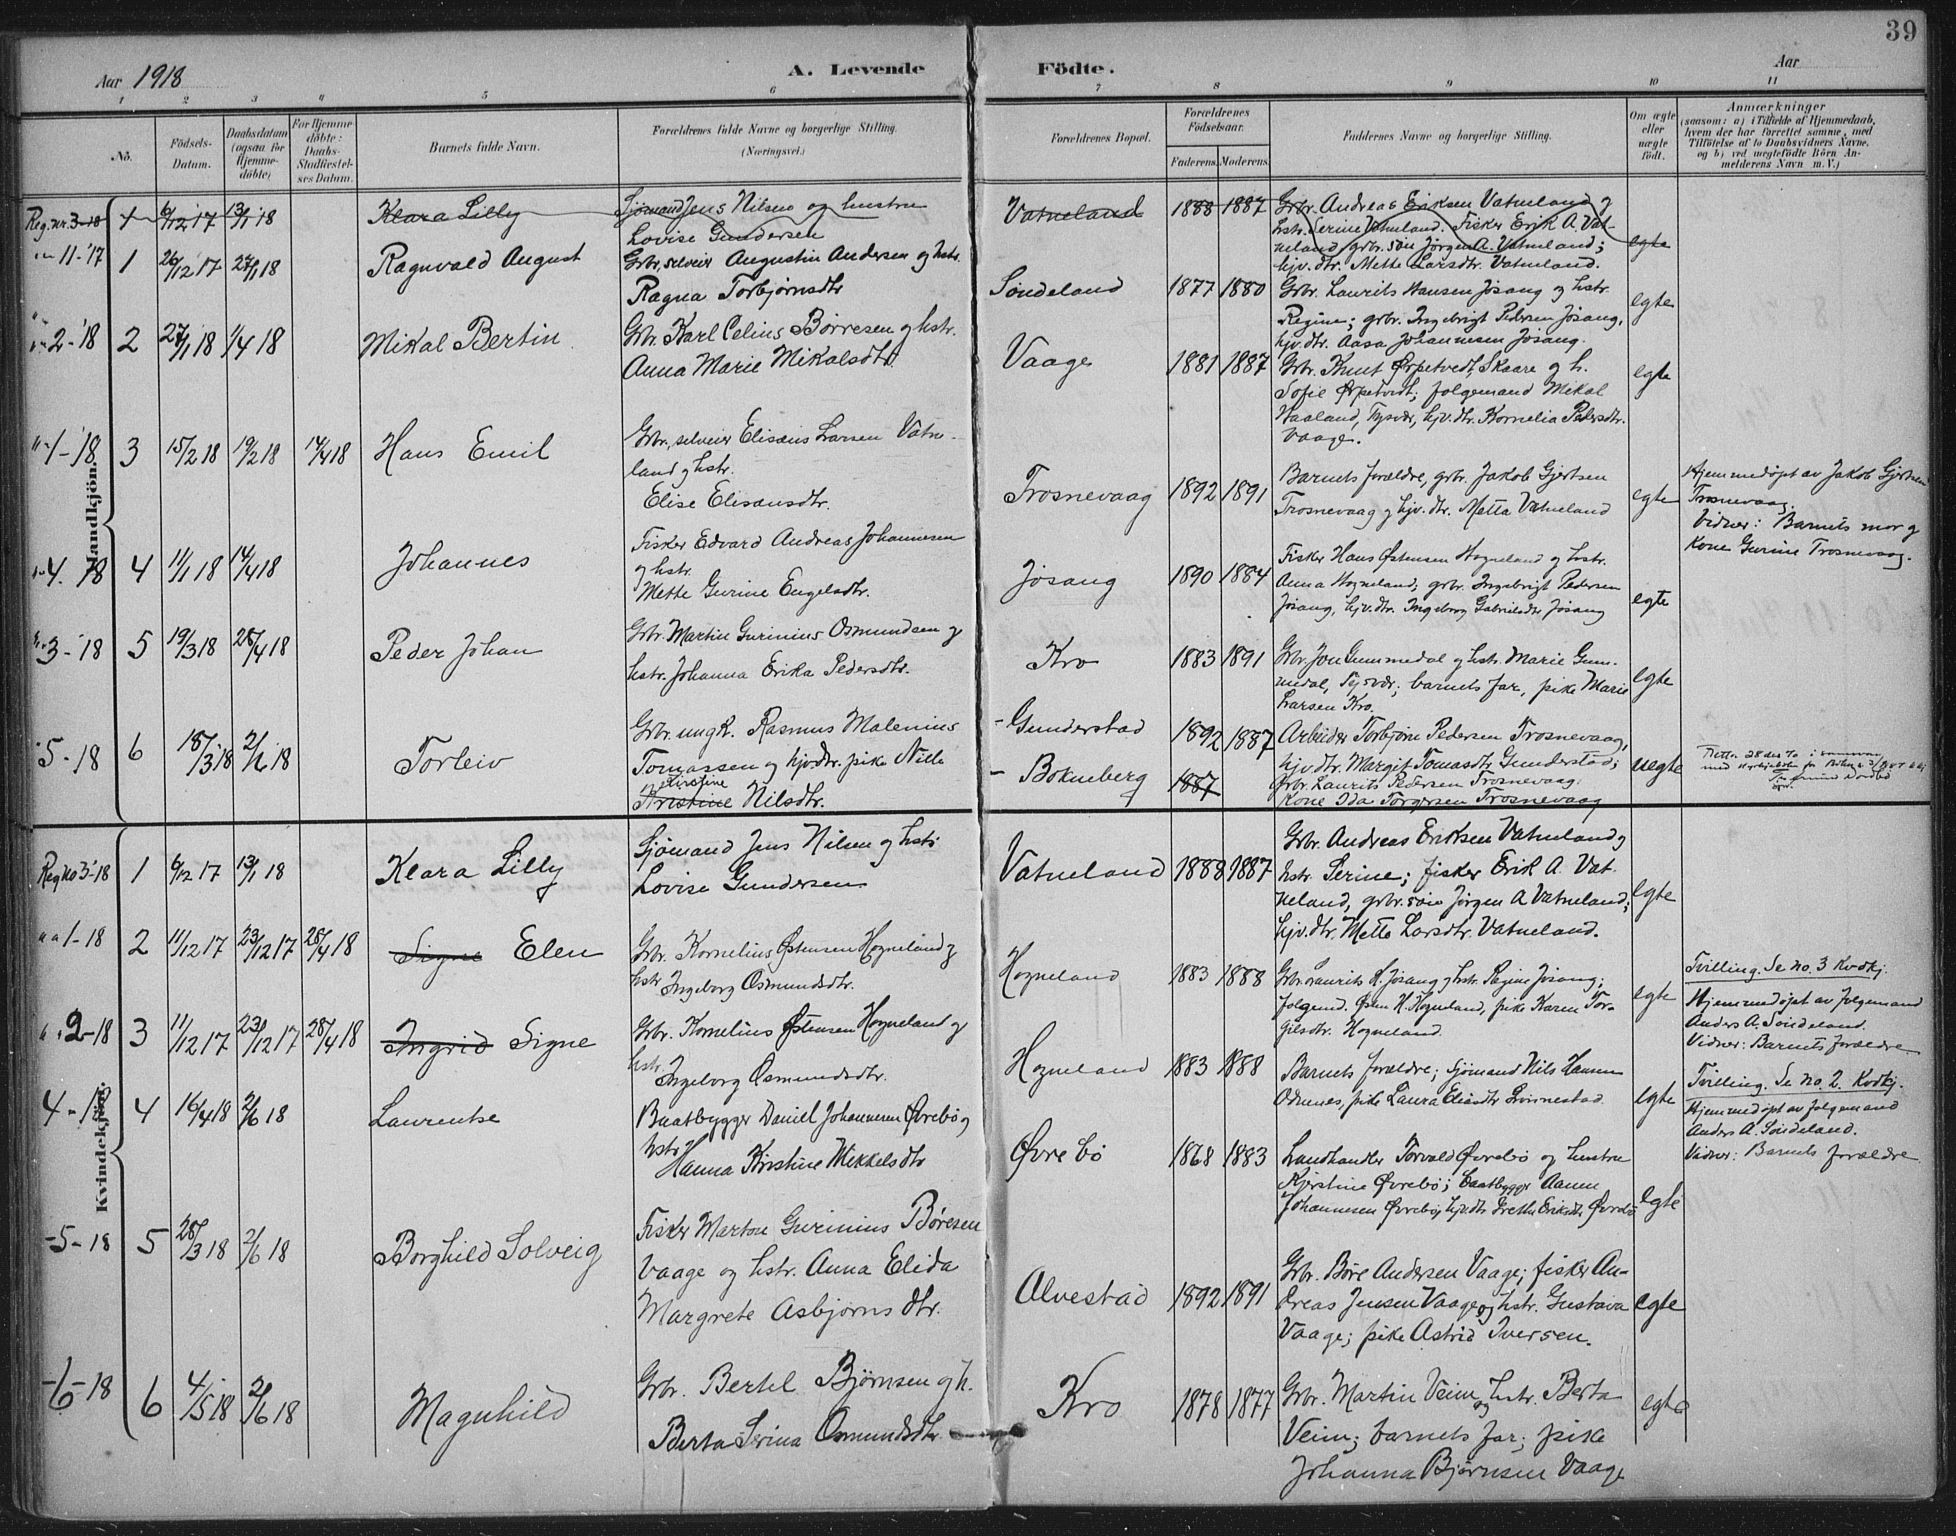 39
Aar 1918
A. Levende Födte.
Aar
1 2 3 4 5 6 7 8 9 10 11
No.
Födsels-Datum.
Daabsdatum (ogsaa for Hjemme-döbte)
For Hjemme-döbte: Daabs-Stadfæstel-ses Datum.
Barnets fulde Navn.
Forældrenes fulde Navne og borgerlige Stilling. (Næringsvei.)
Forældrenes Bopæl.
Forældrenes Födselsaar.
Faderens. Moderens.
Faddernes Navne og borgerlige Stilling.
Om ægte eller uægte födt.
Anmærkninger
(saasom: a) i Tilfælde af Hjemmedaab,
hvem der har forrettet samme, med
Tilföielse af to Daabsvidners Navne,
og b) ved uægtefödte Börn An-
melderens Navn m. V.)
Mandkjön.
Reg. nr. 3-18 1 6/12 17 13/1 18 Klara Lilly
Sjömand Jens Nilsen og hustru
Lovise Gundersen
Vatneland 1888 1887
Grbr. Andreas Eriksen Vatneland og
hstr. Serine Vatneland. Fisker Erik A. Vat-
neland, grbr. søn Jørgen A. Vatneland;
hjv. dtr. Mette Larsdtr. Vatneland.
egte
11-'17 1 26/12 17 27/1 18 Ragnvald August
Grbr, selveier Augustin Andersen og hstr.
Ragna Torbjørnsdtr
Søndeland 1877 1880
Grbr. Laurits Hansen Jøsang og hstr.
Regine; grbr. Ingebrigt Pedersen Jøsang,
hjv. dtr. Aasa Johannesen Jøsang.
egte
2-'18 2 27/1 18 1/4 18 Mikal Bertin
Grbr. Karl Celius Børresen og hstr.
Anna Marie Mikalsdtr.
Vaage 1881 1887
Grbr. Knut Ørpetvedt, Skaare og h.
Sofie Ørpetvedt; folgemand Mikal
Haaland, Tysvær, hjv. dtr. Kornelia Pedersdtr.
Vaage.
egte
1-'18 3 15/2 18 19/2 18 14/4 18 Hans Emil
Grbr, selveier Elisæus Larsen Vatne-
land og hstr.
Elise Elisæusdtr.
Trosnevaag 1892 1891
Barnets forældre, grbr. Jakob Gjertsen
Trosnevaag og hjv. dtr. Metta Vatneland
egte
Hjemmedøpt av Jakob Gjertsen
Trosnevaag.
Vidner: Barnets mor og
Kone Gurine Trosnevaag.
4-18 4 11/1 18 14/4 18 Johannes
Fisker Edvard Andreas Johannesen
og hstr.
Mette Gurine Engelsdtr.
Jøsang 1890 1884
Fisker Hans Østensen Hogneland og hstr.
Anna Hogneland; grbr. Ingebrigt Pedersen
Jøsang, hjv. dtr. Ingeborg Gabrielsdtr Jøsang
egte
3-18 5 19/3 18 28/4 18 Peder Johan
Grbr. Martin Gurinius Osmundsen og
hstr. Johanna Erika Pedersdtr.
Kro 1883 1891
Grbr. Jon Gummedal og hstr. Marie Gum-
medal, Tysvær; barnets far, pike Marie
Larsen Kro.
egte
5-18 6 18/3 18 2/6 18 Torleiv
Grbr. ungk. Rasmus Malenius
Tomassen og hjv. dtr. pike Nille
Kirstine
Kristine Nilsdtr.
- Gunderstad
- Bokneberg
1892 1887
1887
Arbeider Torbjørn Pedersen Trosnevaag,
hjv. dtr. Margit Tomasdtr Gunderstad;
Grbr. Laurits Pedersen Trosnevaag.
Kone Ida Torgersen Trosnevaag
uegte
Kvindekjön.
Reg no 3-18 1 6/12 17 13/1 18 Klara Lilly
Sjömand Jens Nilsen og hstr
Lovise Gundersen
Vatneland 1888 1887
Grbr. Andreas Eriksen Vatneland og
hstr. Serine; fisker Erik A. Vat-
neland, grbr. søn Jørgen A Vatneland;
hjv. dtr. Mette Larsdtr. Vatneland.
egte
1-18 2 11/12 17 23/12 17 28/4 18 Signe Elen
Grbr. Kornelius Østensen Hogneland og
hstr Ingeborg Osmundsdtr.
Hogneland 1883 1888
Grbr. Laurits H. Jøsang og hstr. Regine Jøsang;
folgemd. Østen H. Hogneland, pike Karen Tor-
gilsdtr. Hogneland.
egte
Tvilling. Se no. 3 Kvdkj.
Hjemmedøpt av folgemand
Anders A. Søndeland.
Vidner: Barnets forældre
2-18 3 11/12 17 23/12 17 28/4 18 Ingrid Signe
Grbr. Kornelius Østensen Hogneland og
hstr. Ingeborg Osmundsdtr.
Hogneland 1883 1888
Barnets forældre; Sjömand Nils Hansen
Odnenes, pike Laura Eliasdtr Grinnestad.
egte
Tvilling. Se no. 2. Kvdkj.
Hjemmedøpt av folgemand
Anders A. Søndeland.
Vidner: Barnets forældre
4-18 4 16/4 18 2/6 18 Laurentse
Baatbygger Daniel Johannesen Øvrebø og
hstr Hanna Kristine Mikkelsdtr
Øvrebö 1868 1883
Landhandler Torvald Øvrebø og hustru
Kjerstine Øvrebø; baatbygger Aanen
Johannesen Øvrebø, hjv. dtr Grethe Eriksdtr. Øvrebø
egte
-5-18 5 28/3 18 2/6 18 Borghild Solveig
Fisker Marton Gurinius Børesen
Vaage og hstr. Anna Elida
Margrete Asbjørnsdtr.
Alvestad 1892 1891
Grbr. Børe Andersen Vaage; fisker An-
dreas Jensen Vaage og hstr. Gustava
Vaage; pike Astrid Iversen.
egte
-6-18 6 4/5 18 2/6 18 Magnhild
Grbr. Bertel Bjørnsen og h.
Berta Serina Osmundsdtr.
Kro 1878 1877
Grbr. Martin Veim og hstr. Berta
Veim; barnets far; pike
Johanna Bjørnsen Vaage
egte